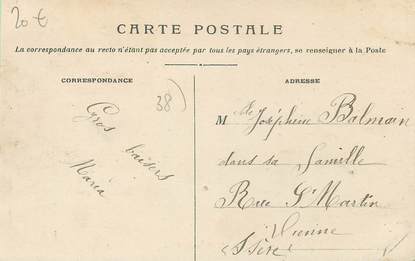 20 €
CARTE POSTALE
La correspondance au recto n'étant pas acceptée par tous les pays étrangers, se renseigner à la Poste
CORRESPONDANCE
38)
Gros baisers
Maria
ADRESSE
Mlle Joséphine Balmain
dans sa famille
Rue St Martin
Vienne
(Isère)